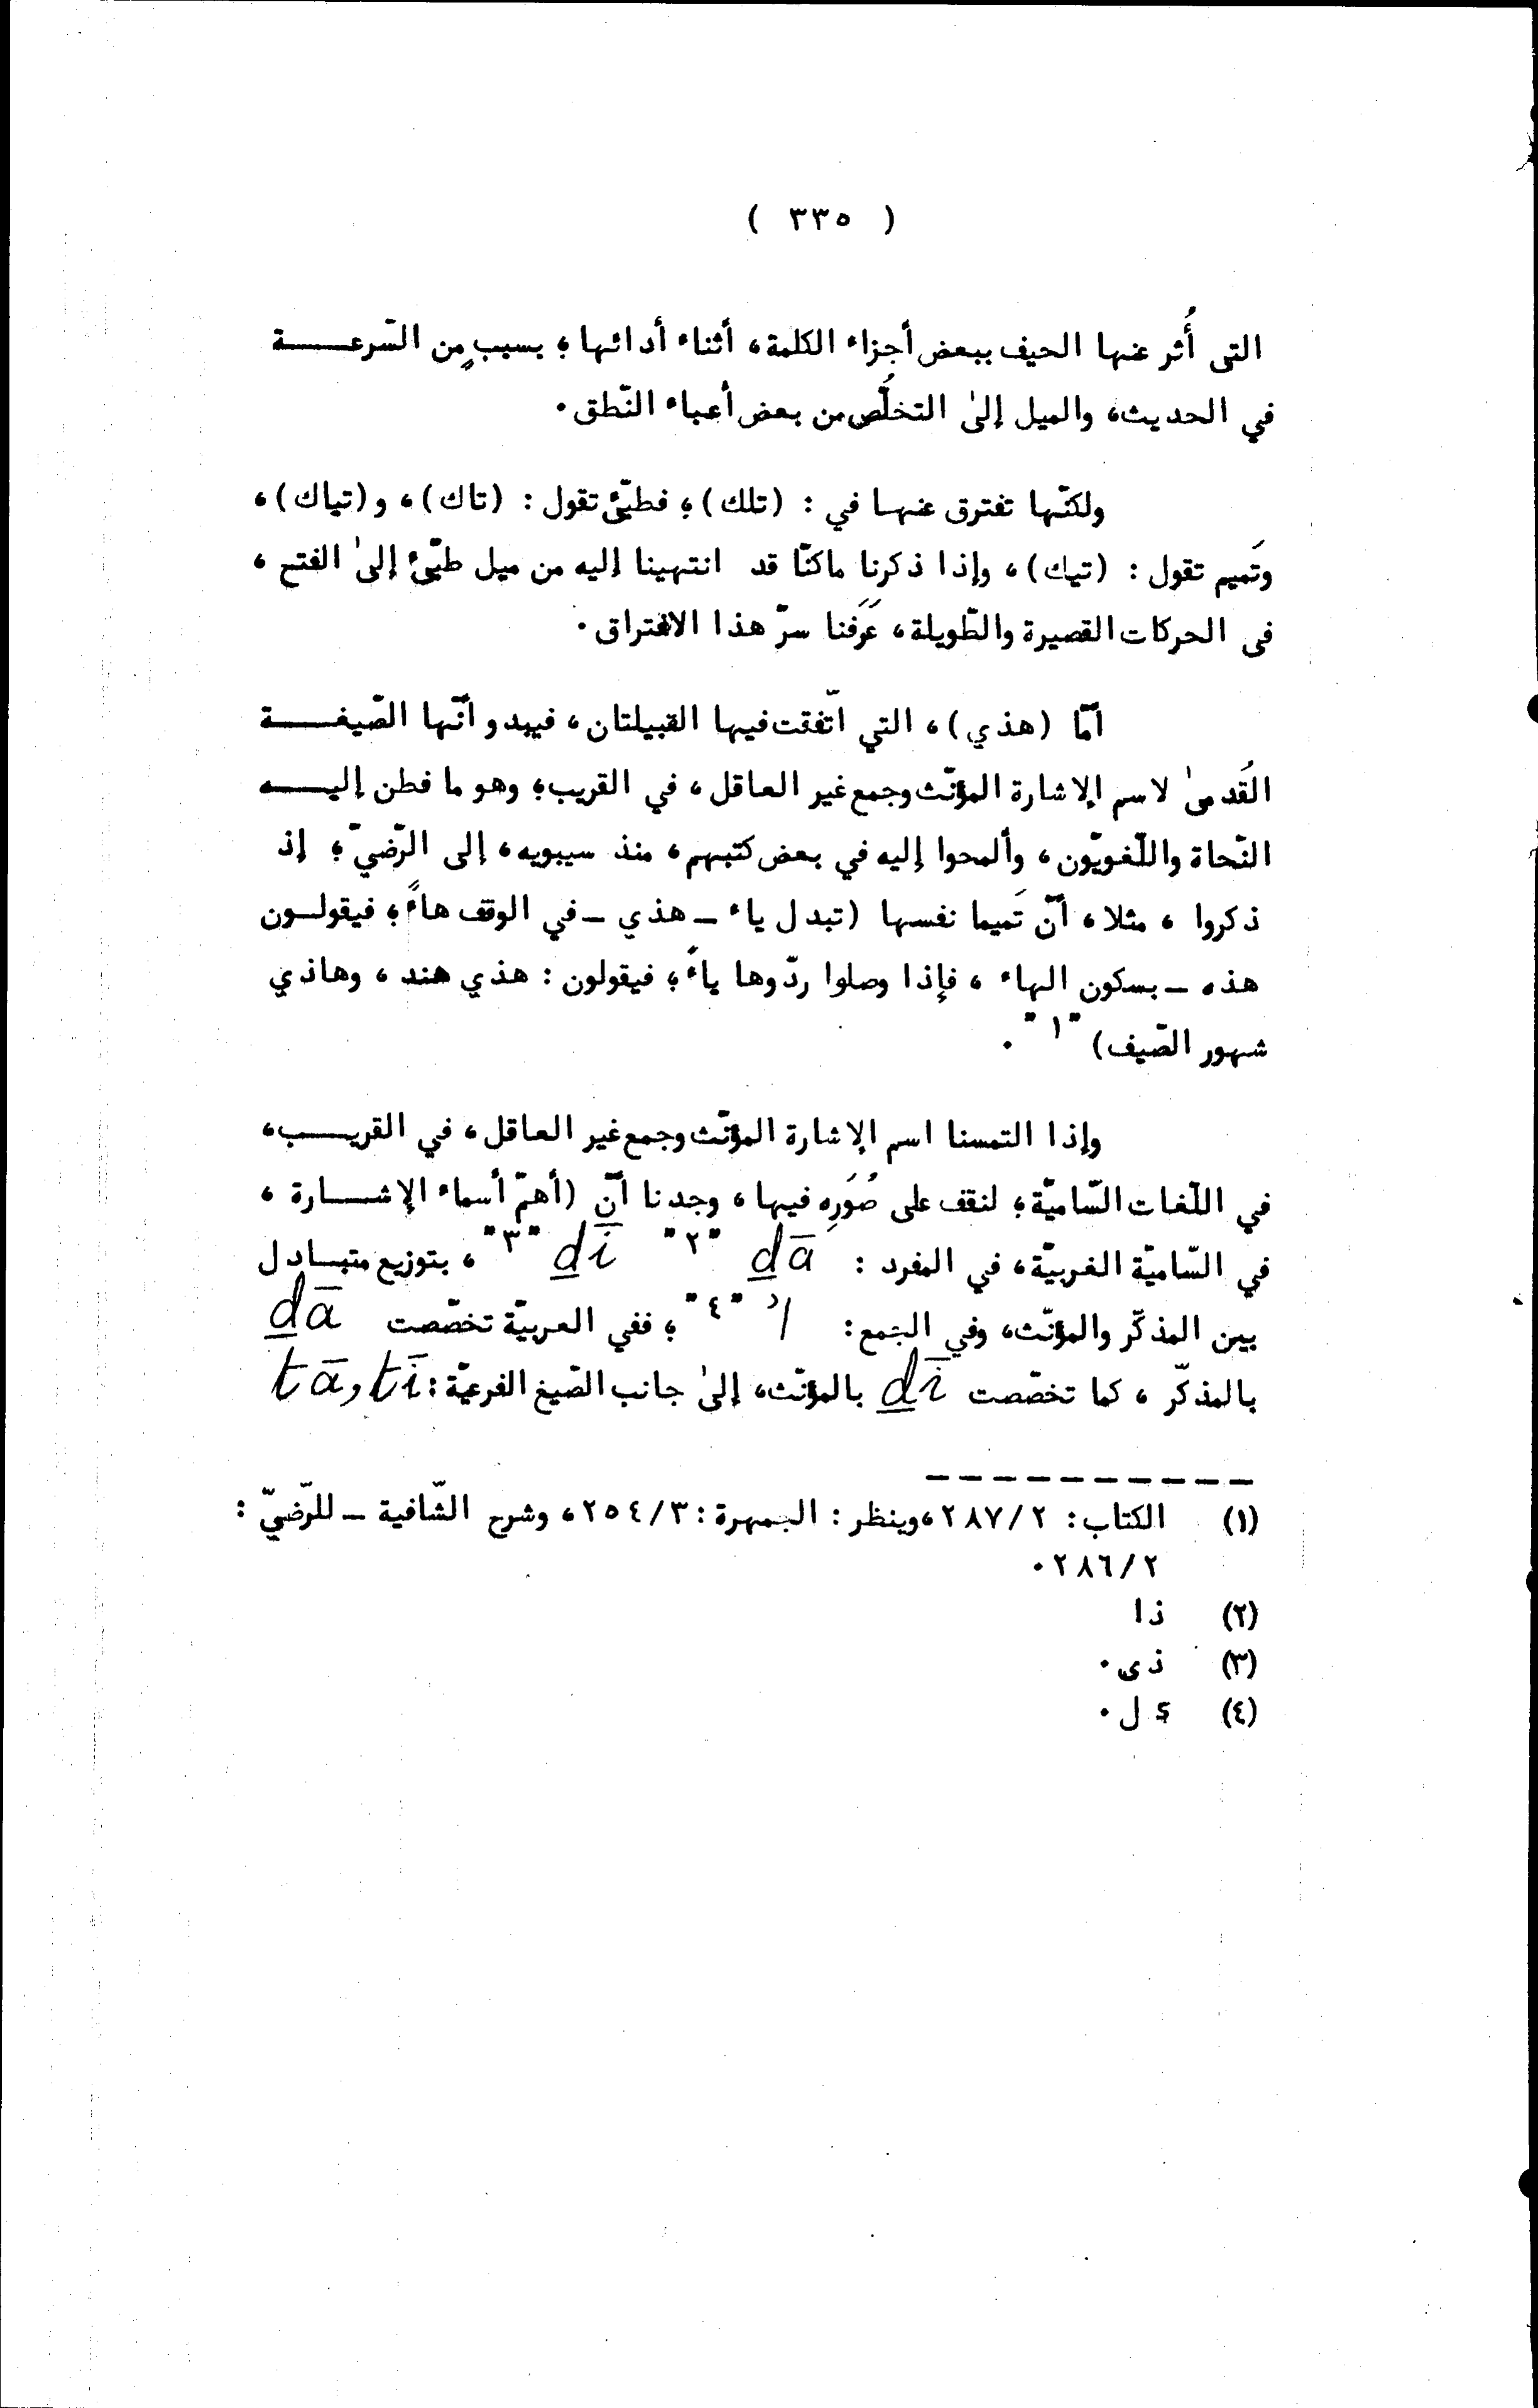 ( ٣٣٥ )
التى أُثر عنها الحيف ببعض أجزاء الكلمة، أثناء أدائها؛ بسببٍ من السّرعـــــة
في الحديث، والميل إلىٰ التخلُّص من بعض أعباء النّطق.
ولكنّها تفترق عنهـا في : (تلك)؛ فطيّئ تقول : (تاك)، و(تياك)،
وتَميم تقول : (تيك)، وإذا ذكرنا ماكنّا قد انتهينا إليه من ميل طيّئ إلىٰ الفتح ،
فى الحركات القصيرة والطّويلة، عَرَفنا سرّ هذا الافتراق.
أمّا (هذي)، التي اتّفقت فيها القبيلتان، فيبدو أنّها الصّيغـــــة
القُدمىٰ لاسم الإشارة المؤنّث وجمع غير العاقل، في القريب؛ وهو ما فطن إليـــــه
النّحاة واللّغويّون، وألمحوا إليه في بعض كتبهم، منذ سيبويه، إلى الرّضيّ؛ إذ
ذكروا ، مثلا، أنّ تَميما نفسها (تبدل ياء ـ هذي ـ في الوقف هاءً؛ فيقولـون
هذه ـ بسكون الهاء ، فإذا وصلوا ردّوها ياءً؛ فيقولون : هذي هند، وهاذي
شهور الصّيف) "١" .
وإذا التمسنا اسم الإشارة المؤنّث وجمع غير العاقل، في القريـــب،
في اللّغات السّاميّة؛ لنقف على صُوَرِه فيها، وجدنا أنّ (أهمّ أسماء الإشـــارة ،
في السّاميّة الغربيّة، في المفرد : ḏā "٢" ḏī "٣" ، بتوزيع متبـادل
بين المذكّر والمؤنّث، وفي الجمع: ʾl "٤" ؛ ففي العربيّة تخصّصت ḏā
بالمذكّر ، كما تخصّصت ḏī بالمؤنّث، إلىٰ جانب الصّيغ الفرعيّة : tā, tī
(١) الكتاب: ٢٨٧/٢، وينظر : الجمهرة : ٢٥٤/٣، وشرح الشّافية ـ للرّضيّ :
٢٨٦/٢.
(٢) ذا
(٣) ذى.
(٤) ء ل.